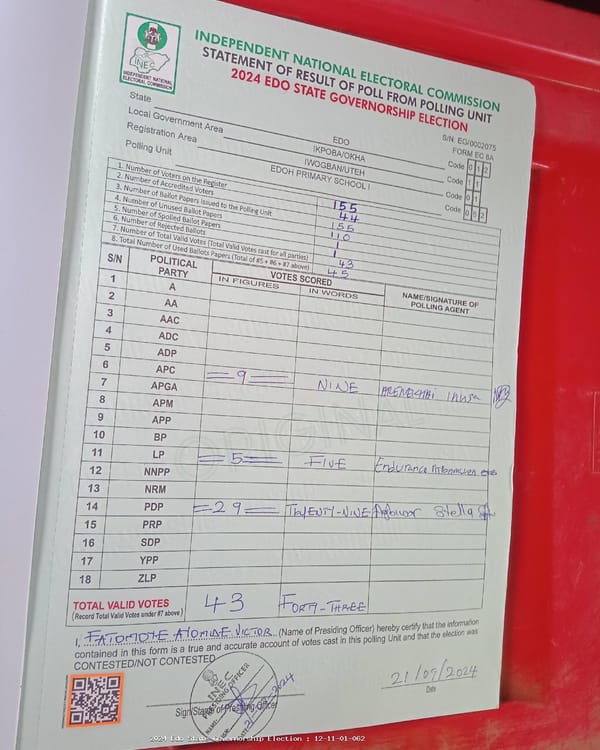 INEC
INDEPENDENT NATIONAL
ELECTORAL COMMISSION
INDEPENDENT NATIONAL ELECTORAL COMMISSION
STATEMENT OF RESULT OF POLL FROM POLLING UNIT
2024 EDO STATE GOVERNORSHIP ELECTION
S/N: EG/0002075
FORM EC 8A
State EDO Code 0 1 2
Local Government Area IKPOBA/OKHA Code 1 1
Registration Area IWOGBAN/UTEH Code 0 1
Polling Unit EDOH PRIMARY SCHOOL I Code 0 0 2
1. Number of Voters on the Register 155
2. Number of Accredited Voters 44
3. Number of Ballot Papers Issued to the Polling Unit 155
4. Number of Unused Ballot Papers 110
5. Number of Spoiled Ballot Papers 1
6. Number of Rejected Ballots 1
7. Number of Total Valid Votes (Total Valid Votes cast for all parties) 43
8. Total Number of Used Ballots Papers (Total of #5 + #6 + #7 above) 45
S/N POLITICAL PARTY VOTES SCORED NAME/SIGNATURE OF POLLING AGENT
IN FIGURES IN WORDS
1 A
2 AA
3 AAC
4 ADC
5 ADP
6 APC =9= NINE
7 APGA
8 APM
9 APP
10 BP
11 LP =5= FIVE Endurance
12 NNPP
13 NRM
14 PDP =29= TWENTY-NINE Stella
15 PRP
16 SDP
17 YPP
18 ZLP
ORIGINAL
TOTAL VALID VOTES 43 FORTY-THREE
(Record Total Valid Votes under #7 above)
I, VICTOR (Name of Presiding Officer) hereby certify that the information
contained in this form is a true and accurate account of votes cast in this polling Unit and that the election was
CONTESTED/NOT CONTESTED
INEC
PRESIDING OFFICER
21/09/2024
Signature of Presiding Officer
Date
2024 Edo State Governorship Election : 12-11-01-062